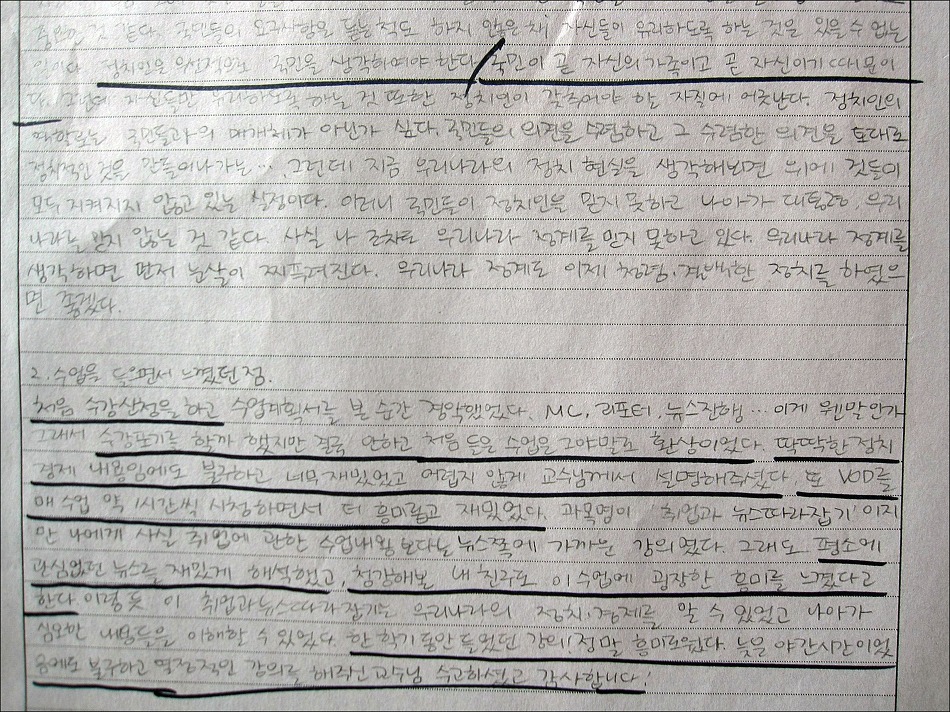 중요한 것 같다. 국민들의 요구사항을 들는척도 하지 않은 채 자신들이 유리하도록 하는 것은 있을 수 없는
일이다. 정치인은 우선적으로 국민을 생각하여야 한다. 국민이 곧 자신의 가족이고 곧 자신이기 때문이
다. 그런데 자신들만 유리하도록 하는 것 또한 정치인이 갖추어야 할 자질에 어긋난다. 정치인의
역할로는 국민들과의 매개체가 아닌가 싶다. 국민들의 의견을 수렴하고 그 수렴한 의견을 토대로
정치적인 것을 만들어나가는… 그런데 지금 우리나라의 정치 현실을 생각해보면 위에 것들이
모두 지켜지지 않고 있는 실정이다. 이러니 국민들이 정치인을 믿지 못하고 나아가 대통령, 우리
나라를 믿지 않는 것 같다. 사실 나 조차도 우리나라 정계를 믿지 못하고 있다. 우리나라 정계를
생각하면 먼저 눈살이 찌푸려진다. 우리나라 정계도 이제 청렴·결백한 정치를 하였으
면 좋겠다.
2. 수업을 들으면서 느꼈던 점.
처음 수강신청을 하고 수업계획서를 본 순간 경악했었다. MC, 리포터, 뉴스진행… 이게 웬말인가
그래서 수강포기를 할까 했지만 결국 안하고 처음 들은 수업은 그야말로 환상이었다. 딱딱한 정치
경제 내용임에도 불구하고 너무 재밌었고 어렵지 않게 교수님께서 설명해주셨다. 또 VOD를
매 수업 약 1시간씩 시청하면서 더 흥미롭고 재밌었다. 과목명이 '취업과 뉴스따라잡기' 이지
만 나에게 사실 취업에 관한 수업내용 보다는 뉴스쪽에 가까운 강의였다. 그래도 평소에
관심없던 뉴스를 재밌게 해석했고, 청강해본 내 친구도 이 수업에 굉장한 흥미를 느꼈다고
한다. 이렇듯 이 취업과뉴스따라잡기는 우리나라의 정치·경제를 알 수 있었고 나아가
심오한 내용들을 이해할 수 있었다. 한 학기동안 들었던 강의! 정말 흥미로웠다. 늦은 야간시간이었
음에도 불구하고 열정적인 강의를 해주신 교수님 수고하셨고 감사합니다!